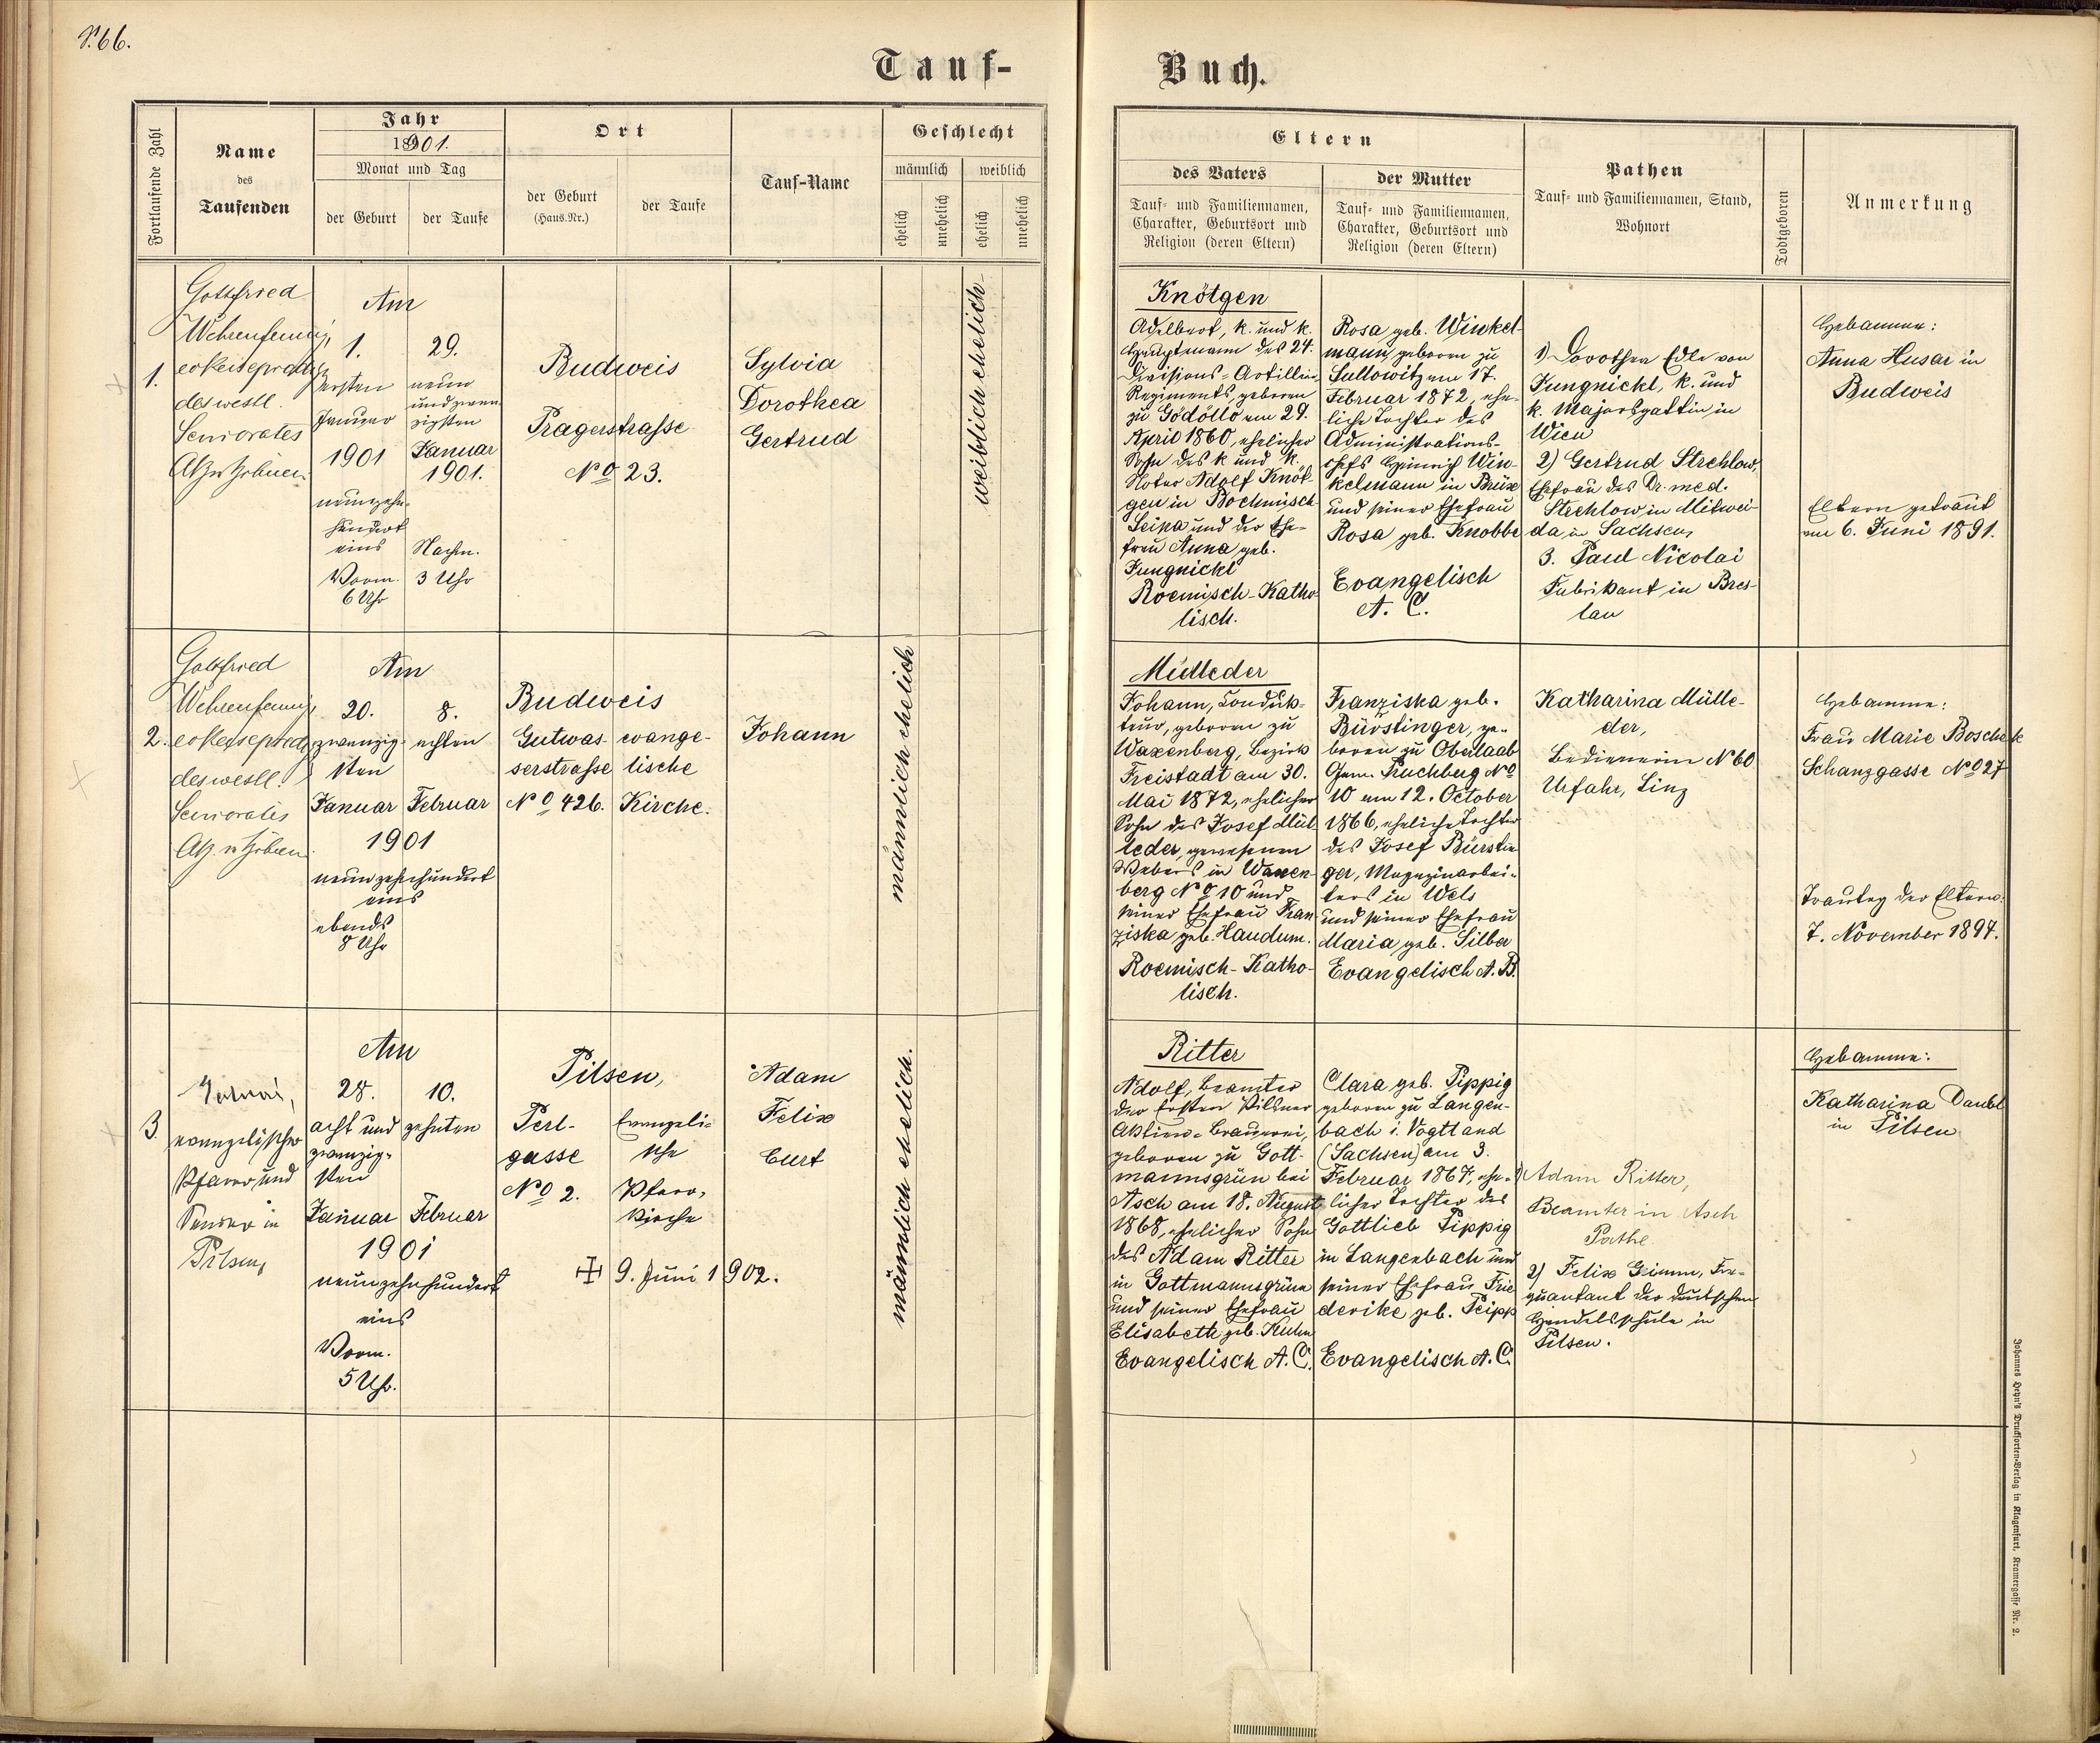 S. 66.
Tauf-
Buch.
Fortlaufende Zahl
Name
des
Taufenden
Jahr
1901.
Monat und Tag
der Geburt
der Taufe
Ort
der Geburt
(Haus-Nr.)
der Taufe
Tauf-Name
Geschlecht
männlich
weiblich
ehelich
unehelich
ehelich
unehelich
Eltern
des Vaters
Tauf- und Familiennamen,
Charakter, Geburtsort und
Religion (deren Eltern)
der Mutter
Tauf- und Familiennamen,
Charakter, Geburtsort und
Religion (deren Eltern)
Pathen
Tauf- und Familiennamen, Stand,
Wohnort
Todtgeboren
Anmerkung
1.
Gottfried
des westl.
Seniorates
Am
1.
ersten
Januar
1901
neunzehn-
hundert
eins
Vorm.
6 Uhr
29.
neun
und zwan-
zigsten
Januar
1901.
Nachm.
3 Uhr
Budweis
Pragerstrasse
No 23.
Sylvia
Dorothea
Gertrud
weiblich ehelich
Knötgen
Adelbert, k. und k.
Hauptmann des 24.
Divisions-Artillerie
Regiments, geboren
zu Gödöllö am 29.
April 1860, ehelicher
Sohn des k und k.
Notar Adolf Knöt-
gen in Boehmisch
Leipa und der Ehe-
frau Anna geb.
Jungnickl
Roemisch-Katho-
lisch.
Rosa geb. Winkel-
mann, geboren zu
Sullowitz am 17.
Februar 1872, ehe-
liche Tochter des
Administrations-
chefs Heinrich Win-
kelmann in Brüx
und seiner Ehefrau
Rosa geb. Knobbe
Evangelisch
A. C.
1) Dorothea Edle von
Jungnickl, k. und
k. Majorsgattin in
Wien
2) Gertrud Strehlow,
Ehefrau des Dr. med.
Strehlow in Mitwei-
da in Sachsen,
3. Paul Nicolai
Fabrikant in Bres-
lau
Hebamme:
Anna Husar in
Budweis
Eltern getraut
am 6. Juni 1891.
2.
Gottfried
des westl.
Seniorates
Am
20.
zwanzig-
sten
Januar
8.
achten
Februar
1901
neunzehnhundert
eins
abends
8 Uhr
Budweis
Gutwas-
serstrasse
No 426.
evange-
lische
Kirche.
Johann
männlich ehelich
Mülleder
Johann, Conduk-
teur, geboren zu
Waxenberg, Bezirk
Freistadt am 30.
Mai 1872, ehelicher
Sohn des Josef Mül-
leder, gewesenen
Webers in Waxen-
berg No 10 und
seiner Ehefrau Fran-
ziska geb. Haudum.
Roemisch-Katho-
lisch.
Franziska geb.
Bürstinger, ge-
boren zu Oberlaab
Gem. Puchberg No
10 am 12. October
1866, eheliche Tochter
des Josef Bürstin-
ger, Magazinarbei-
ters in Wels
und seiner Ehefrau
Maria geb. Silber
Evangelisch A. B.
Katharina Mülle-
der,
Bedienerin No 60
Urfahr, Linz
Hebamme:
Frau Marie Boschek
Schanzgasse No 27
Trautag der Eltern:
7. November 1897.
3.
evangelischer
Pfarrer und
Senior in
Pilsen,
Am
28.
acht und
zwanzig-
sten
Januar
10.
zehnten
Februar
1901
neunzehnhundert
eins
Vorm.
5 Uhr.
Pilsen,
Perl-
gasse
No 2.
Evangeli-
sche
Pfarr-
kirche
9. Juni 1902.
Adam
Felix
Curt
männlich ehelich.
Ritter
Adolf, Beamter
der Ersten Pilsner
Aktien-Brauerei,
geboren zu Gott-
mannsgrün bei
Asch am 18. August
1868, ehelicher Sohn
des Adam Ritter
in Gottmannsgrün
und seiner Ehefrau
Elisabeth geb. Kuhn
Evangelisch A. C.
Clara geb. Pippig
geboren zu Langen-
bach i. Vogtland
(Sachsen) am 3.
Februar 1867, ehe-
licher Tochter des
Gottlieb Pippig
in Langenbach und
seiner Ehefrau Frie-
derike geb. Peipp
Evangelisch A. C.
1) Adam Ritter,
Beamter in Asch
Pathe.
2) Felix Grimm, Fre-
quantant der deutschen
Handelsschule in
Pilsen.
Hebamme:
Katharina Daubl
in Pilsen
Johannes Heyn's Drucksorten-Verlag in Klagenfurt, Kramergasse Nr. 2.